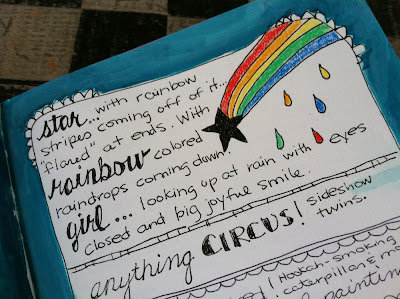 star... with rainbow
stripes coming off of it...
"flared" at ends. With
rainbow colored
raindrops coming down.
girl ... looking up at rain with eyes
closed and big joyful smile.
anything CIRCUS! sideshow
twins.
Hookah-smoking
caterpillar &
painting